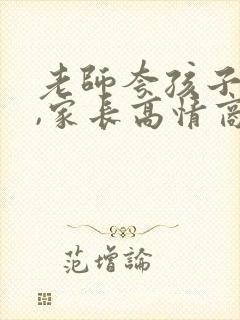 老師夸孩子
,家長高情商
范增論